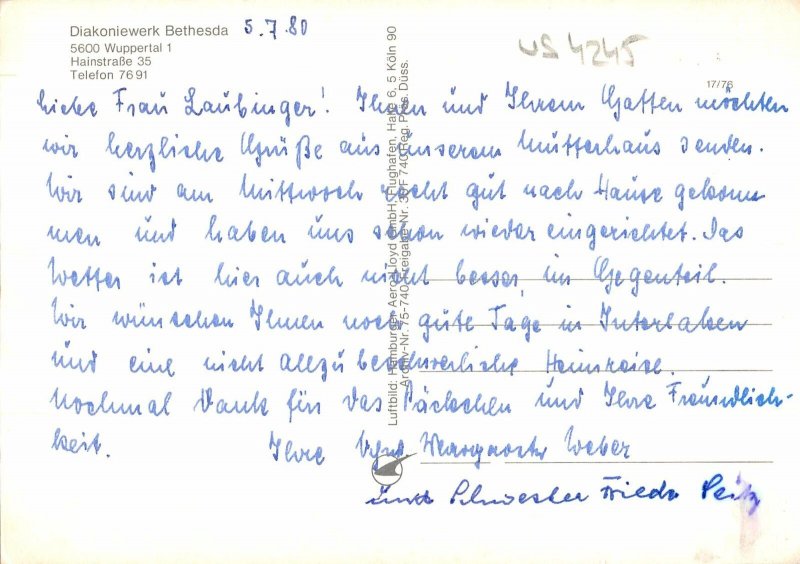 Diakoniewerk Bethesda 5.7.80
5600 Wuppertal 1
Hainstraße 35
Telefon 76 91
US 4245
17/76
Liebe Frau Laubinger! Ihnen und Ihrem Gatten möchten
wir herzliche Grüße aus unserem Mutterhaus senden.
Wir sind am Mittwoch recht gut nach Hause gekom
men und haben uns schon wieder eingerichtet. Das
Wetter ist hier auch nicht besser, im Gegenteil.
Wir wünschen Ihnen noch gute Tage in Interlaken
und eine nicht allzu beschwerliche Heimreise.
Nochmal Dank für das Päckchen und Ihre Freundlich-
keit. Ihre Margarete Weber
und Schwester Frieda
Luftbild: Hamburger Aero-Lloyd GmbH, Flughafen, Halle 6, 5 Köln 90
Archiv-Nr. 75-740 Freigabe-Nr. Reg. Präs. Düss.